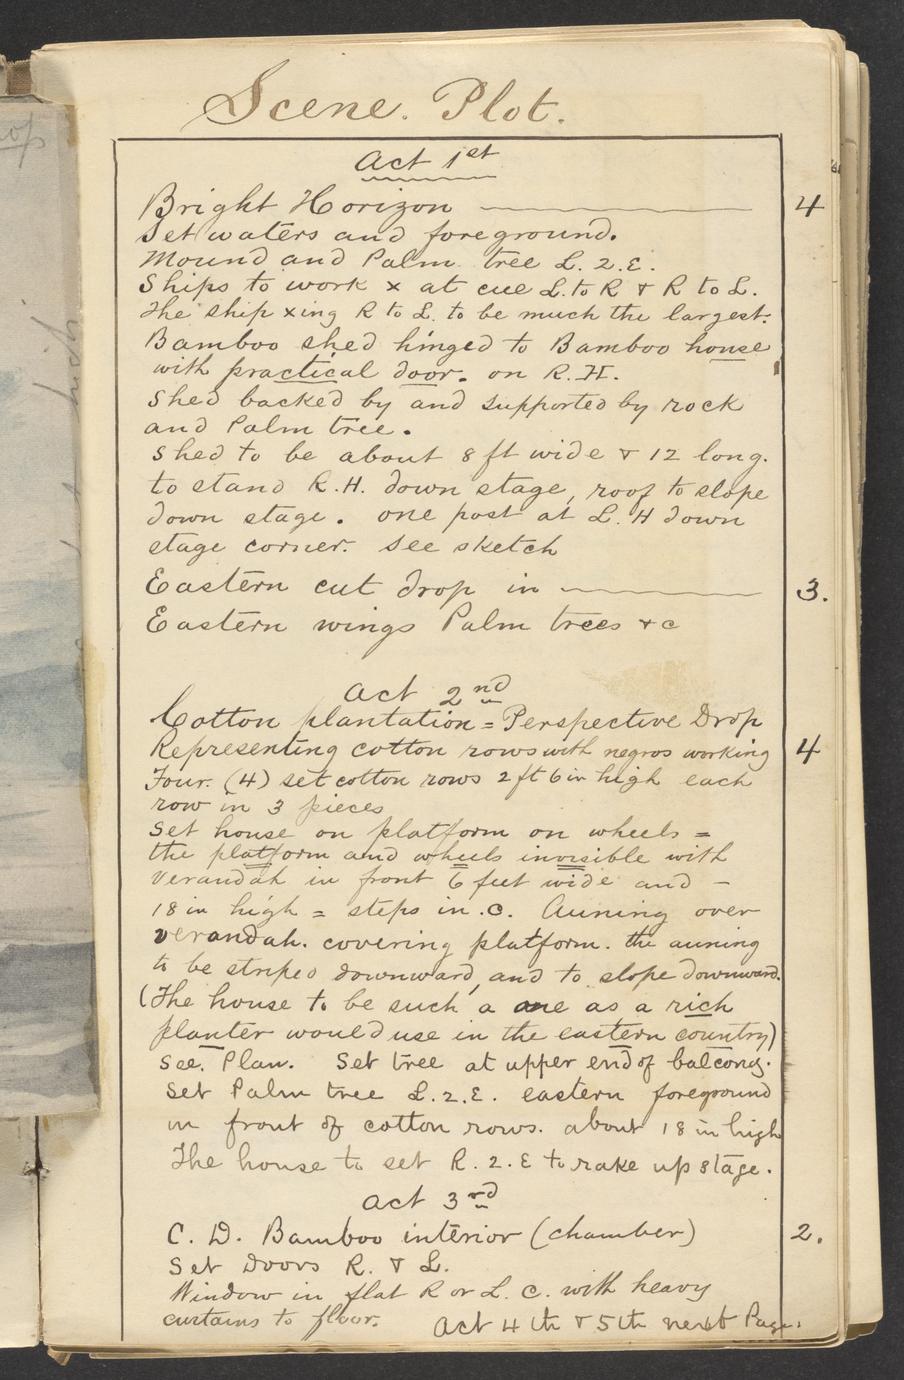 Scene. Plot.
Act 1st
Bright Horizon 4
Set waters and foreground.
Mound and Palm tree L. 2. E.
Ships to work x at cue L. to R & R to L.
The ship xing R to L. to be much the largest.
Bamboo shed hinged to Bamboo house
with practical door. on R. H.
Shed backed by and supported by rock
and Palm tree.
Shed to be about 8 ft wide & 12 long.
to stand R. H. down stage, roof to slope
down stage. one post at L. H down
stage corner. see sketch
Eastern cut drop in 3.
Eastern wings Palm trees &c
Act 2nd
Cotton plantation = Perspective Drop
Representing cotton rows with negros working 4
Four. (4) set cotton rows 2 ft 6 in high each
row in 3 pieces
Set house on platform on wheels =
the platform and wheels invisible with
verandah in front 6 feet wide and -
18 in high = steps in. C. Auning over
verandah. covering platform. the auning
to be striped downward, and to slope downward.
(The house to be such a one as a rich
planter would use in the eastern country)
See. Plan. Set tree at upper end of balcony.
Set Palm tree L. 2. E. eastern foreground
in front of cotton rows. about 18 in high
The house to set R. 2. E to rake up stage.
Act 3rd
C. D. Bamboo interior (chamber) 2.
Set Doors R. & L.
Window in flat R or L. C. with heavy
curtains to floor.
Act 4th & 5th next Page.